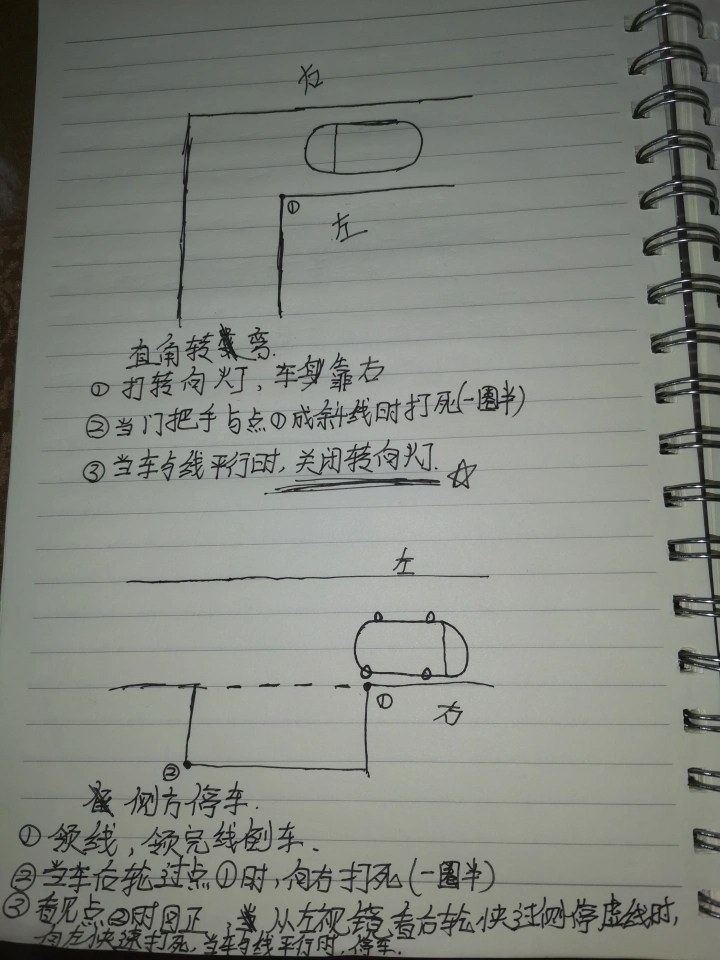 右
①
左
直角转弯.
① 打转向灯，车身靠右
② 当门把手与点①成斜线时打死(一圈半)
③ 当车与线平行时，关闭转向灯.☆
左
①
右
②
侧方停车.
① 领线，领完线倒车.
② 当车右轮过点①时，向右打死(一圈半)
③ 看见点②时回正，从左视镜看右轮快过侧停虚线时，
向左快速打死，当车与线平行时，停车.